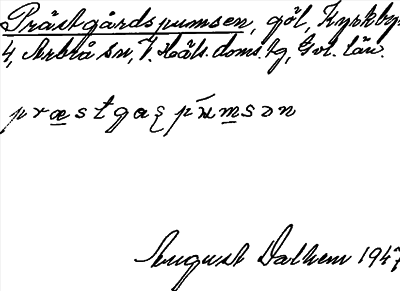 Prästgårdspumsen, göl, Kyrkby
4, Arbrå sn, V. Häls. doms. tg, Gvl. län.
præstgaʂpúmsən
August Dalhem 1947